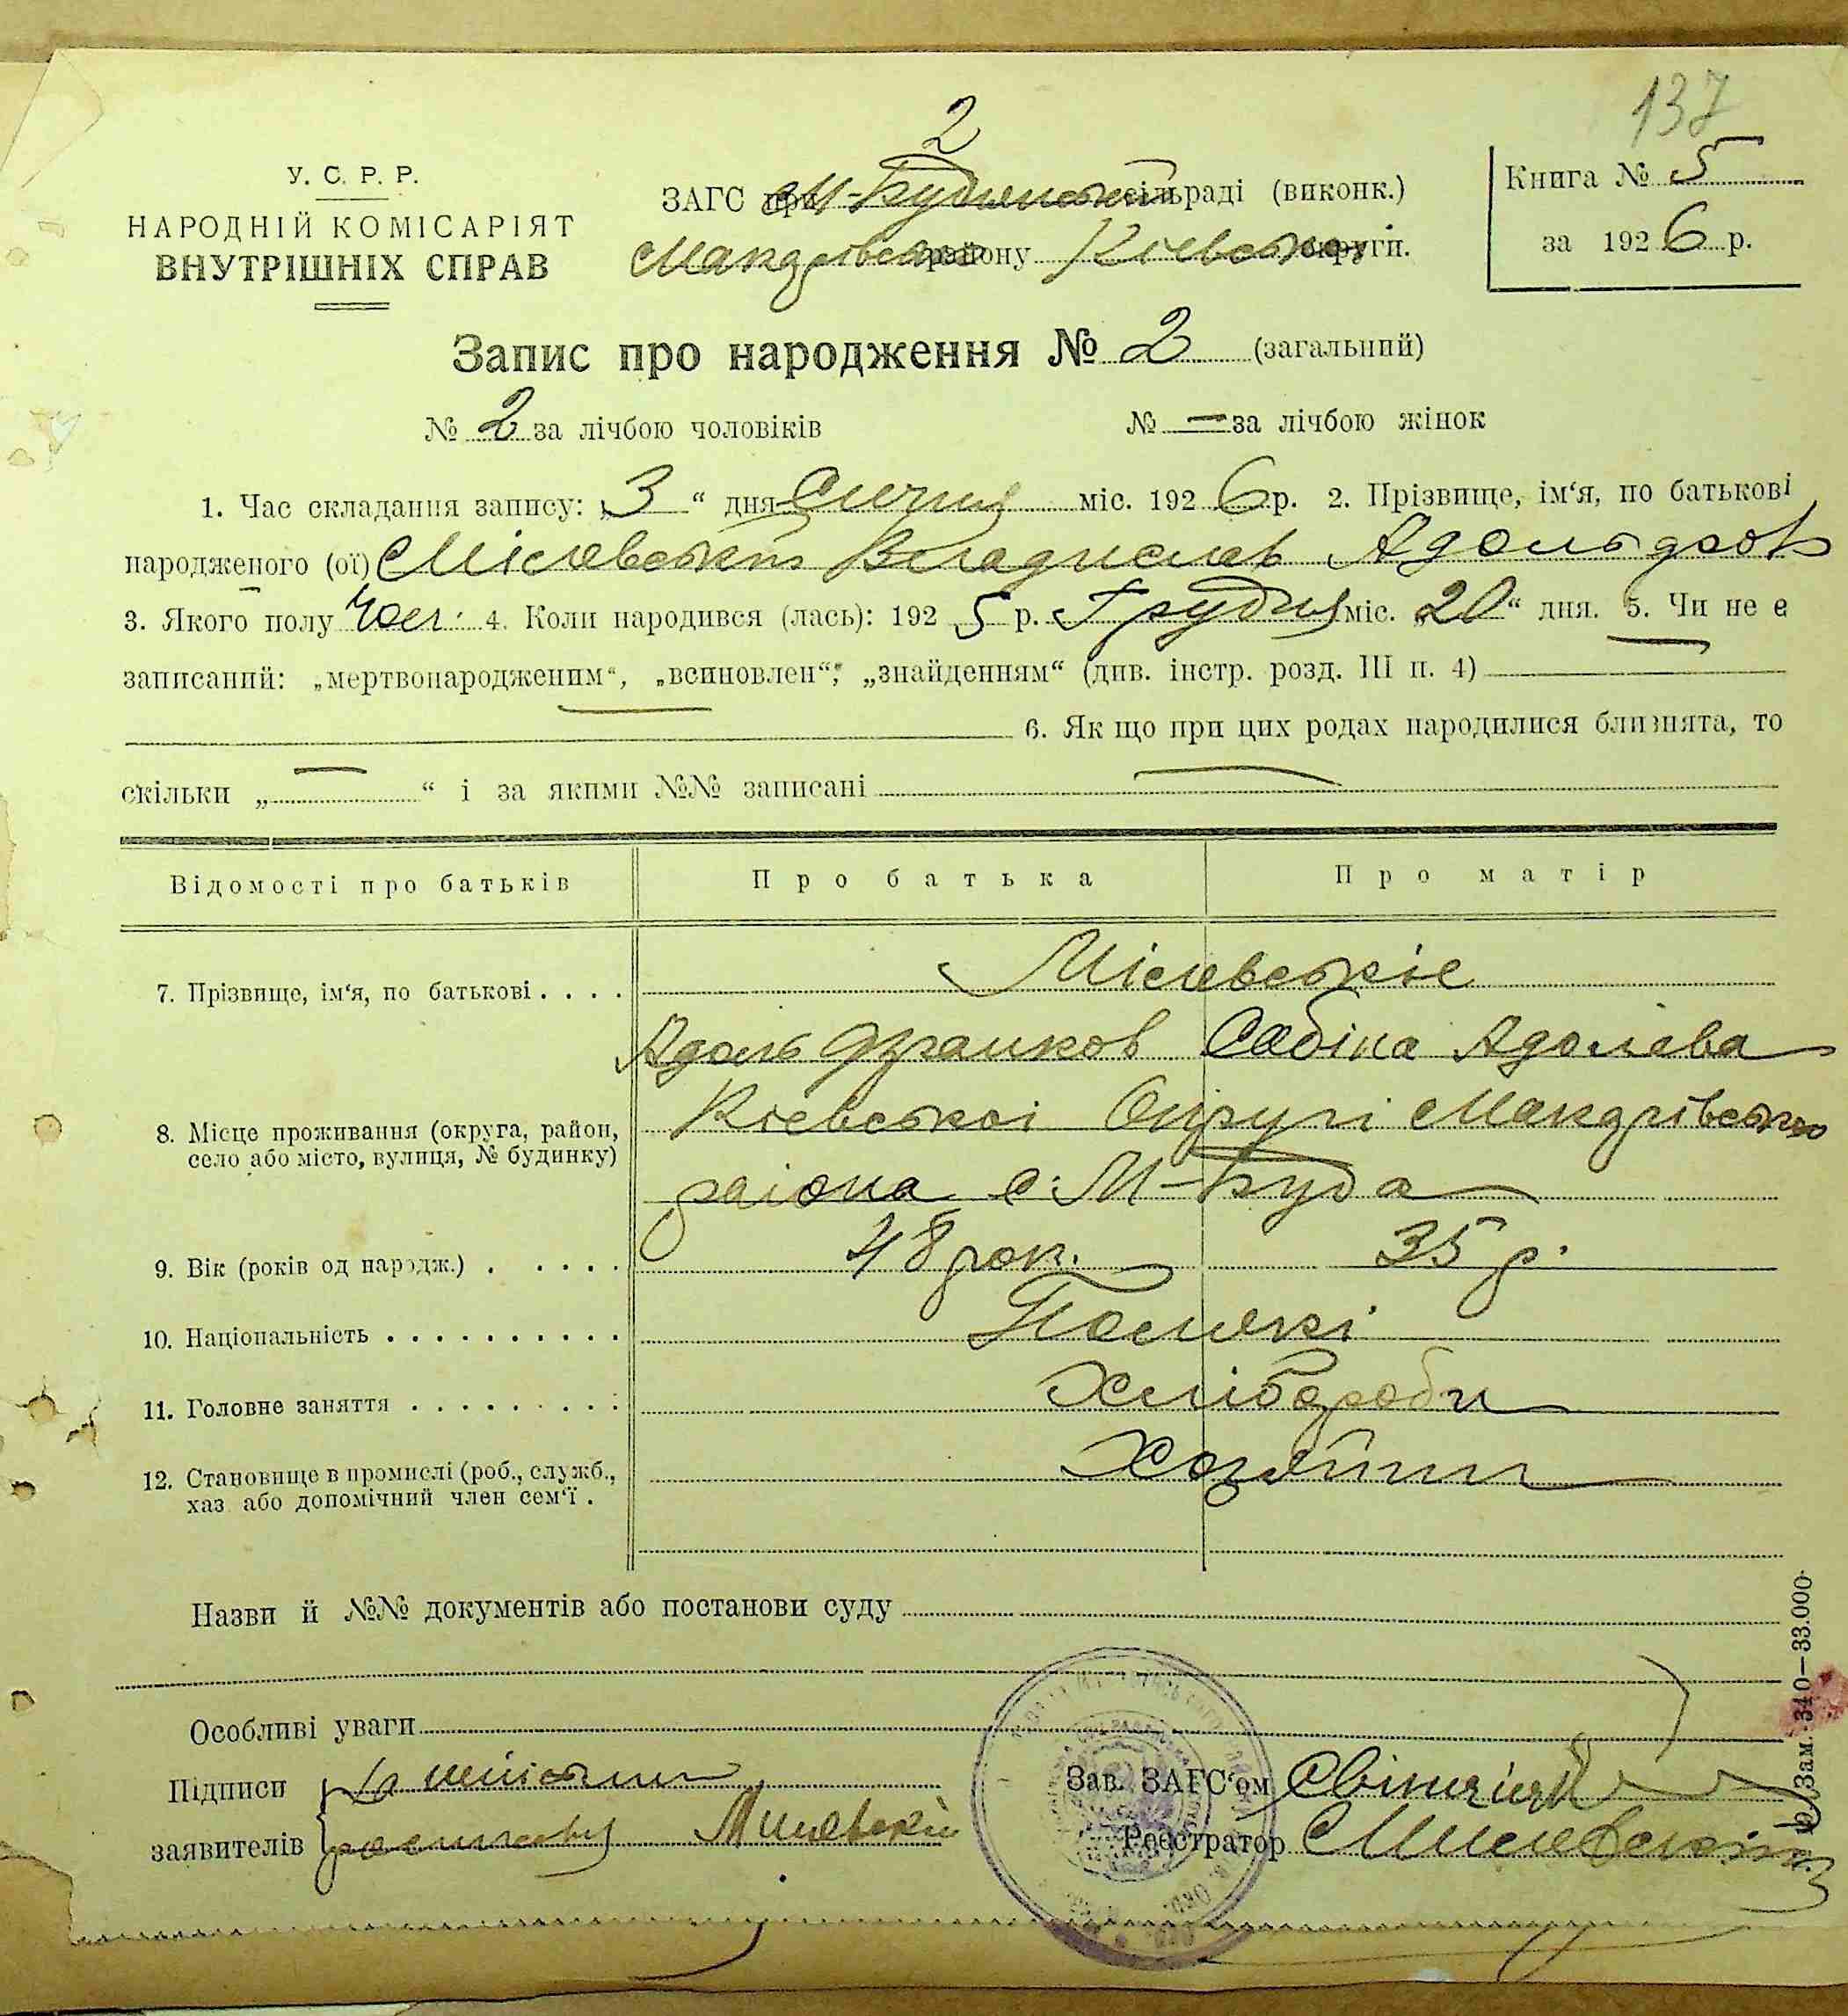 137
2
У. С. Р. Р.
НАРОДНІЙ КОМІСАРІЯТ
ВНУТРІШНІХ СПРАВ
ЗАГС при М-Будянській сільраді (виконк.)
Макарівського району Київської округи.
Книга № 5
за 1926 р.
Запис про народження № 2 (загальний)
№ 2 за лічбою чоловіків № — за лічбою жінок
1. Час складання запису: „3“ дня Січня міс. 1926 р. 2. Прізвище, ім‘я, по батькові
народженого (ої) Місевський Владислав Адольфов
3. Якого полу Чол. 4. Коли народився (лась): 1925 р. Грудня міс. „20“ дня. 5. Чи не є
записаний: „мертвонародженим“, „всиновлен“, „знайденням“ (див. інстр. розд. III п. 4)
6. Як що при цих родах народилися близнята, то
скільки „—“ і за якими №№ записані —
Відомості про батьків Про батька Про матір
7. Прізвище, ім‘я, по батькові . . . . Місевські
Адоль Франков Сабіна Адолева
8. Місце проживання (округа, район, село або місто, вулиця, № будинку) Кієвськоі Округі Макарівського
раіона с. М-Буда
9. Вік (років од народж.) . . . . . 48 рок. 35 р.
10. Національність . . . . . . . . . . Поляки
11. Головне заняття . . . . . . . . . : Хлібороби
12. Становище в промислі (роб., служб., Хозяїни
хаз або допомічний член сем‘ї .
Назви й №№ документів або постанови суду
Особливі уваги
Підписи
заявителів
Зав. ЗАГС‘ом
Реєстратор
Зам. 340—33.000